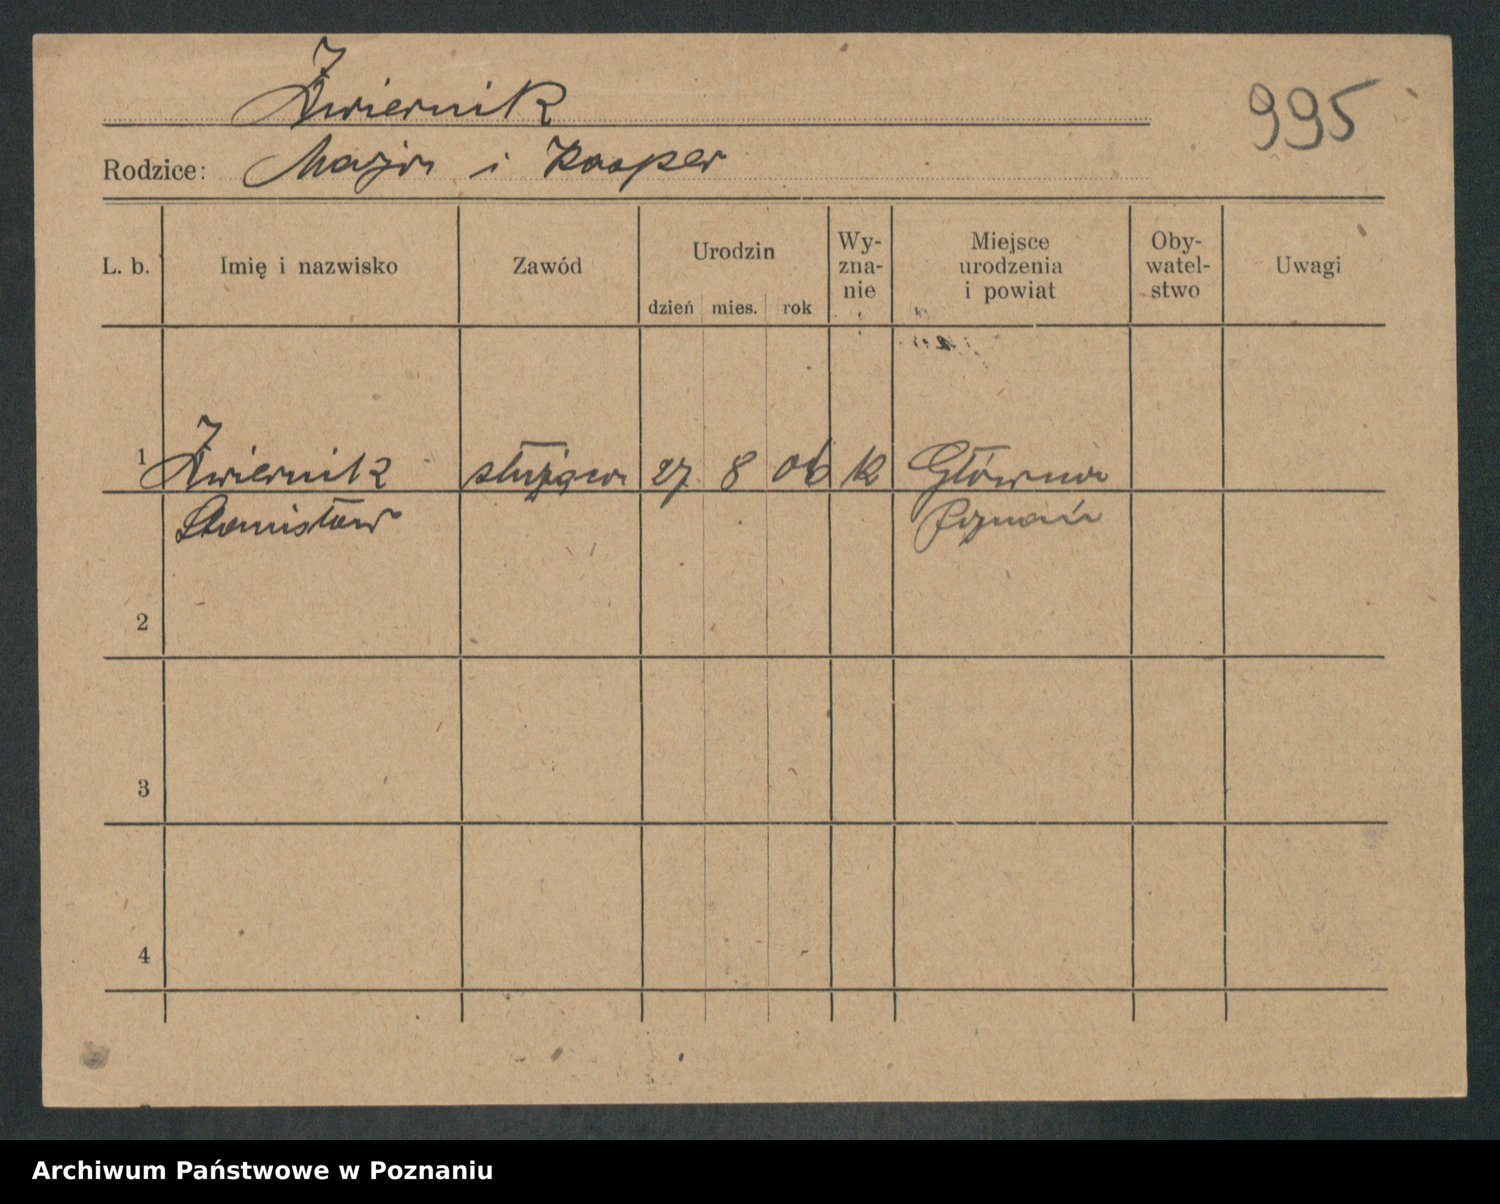 Żwiernik
995
Rodzice: Marja i Kasper
L. b. Imię i nazwisko Zawód Urodzin dzień mies. rok Wy-zna-nie Miejsce urodzenia i powiat Oby-watel-stwo Uwagi
1 Żwiernik służąca 27 8 06 k Główna
Stanisław Poznań
2
3
4
Archiwum Państwowe w Poznaniu